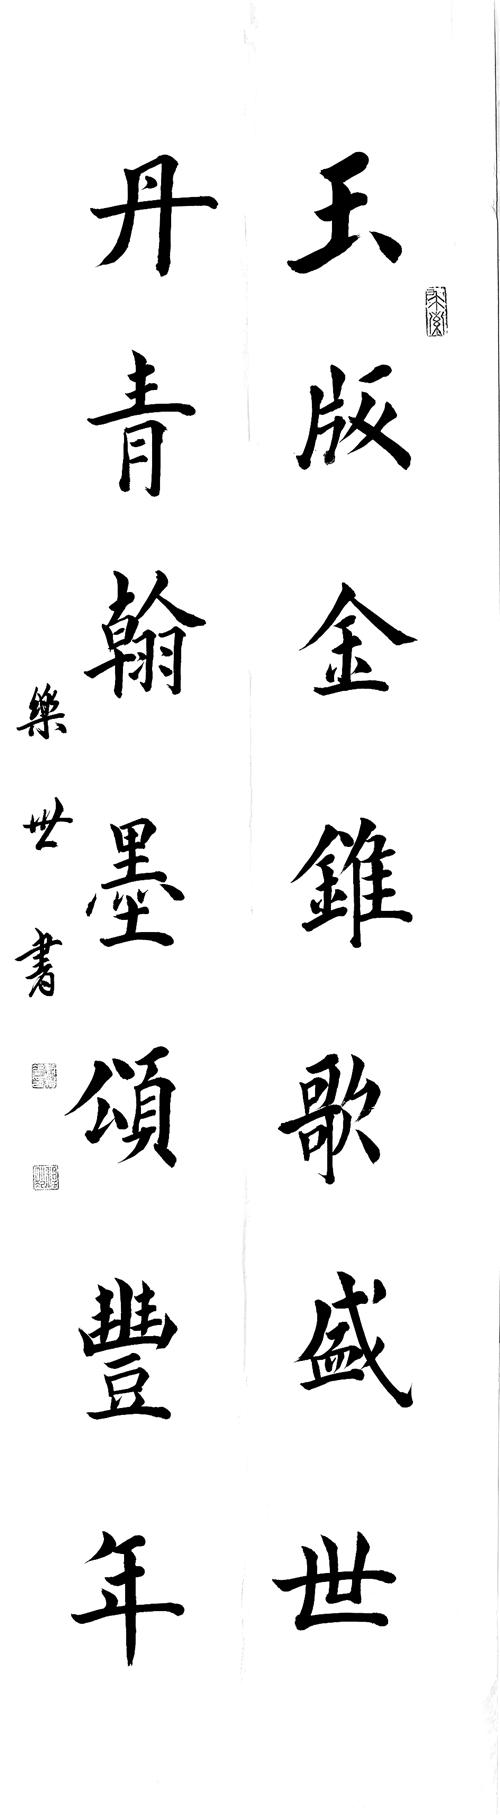 玉版金錐歌盛世
丹青翰墨頌豐年
樂世書